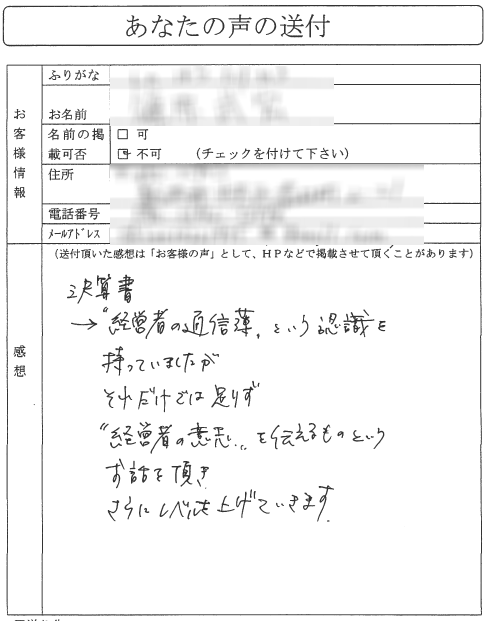 あなたの声の送付
お客様情報
ふりがな
お名前
名前の掲載可否
□ 可
□ 不可 (チェックを付けて下さい)
住所
電話番号
メールアドレス
感想
(送付頂いた感想は「お客様の声」として、HPなどで掲載させて頂くことがあります)
決算書
→ "経営者の通信簿" という認識を
持っていましたが
それだけでは足りず
"経営者の意志" を伝えるものという
お話を頂き
さらにレベルを上げていきます